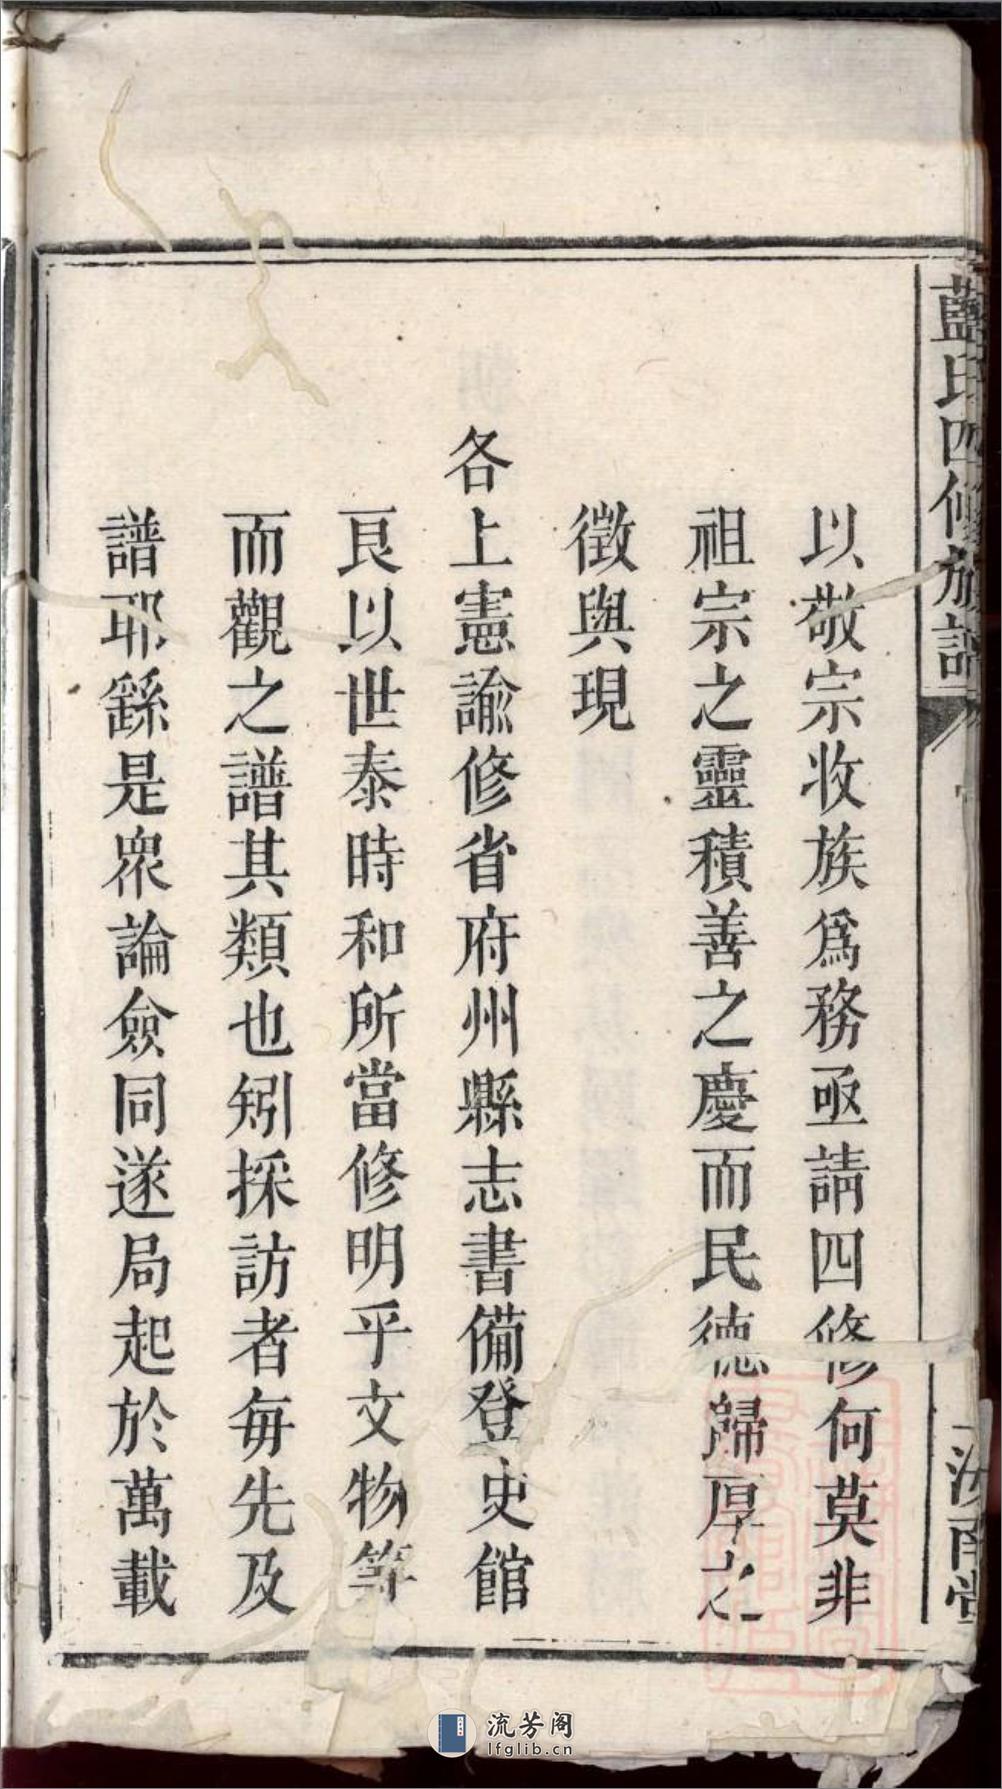 藍氏四修族譜
汝南堂
以敬宗收族爲務亟請四修何莫非
祖宗之靈積善之慶而民德歸厚之
徵與現
各上憲諭修省府州縣志書備登史館
良以世泰時和所當修明乎文物等
而觀之譜其類也矧採訪者每先及
譜耶繇是眾論僉同遂局起於萬載
流芳阁
lfglib.cn